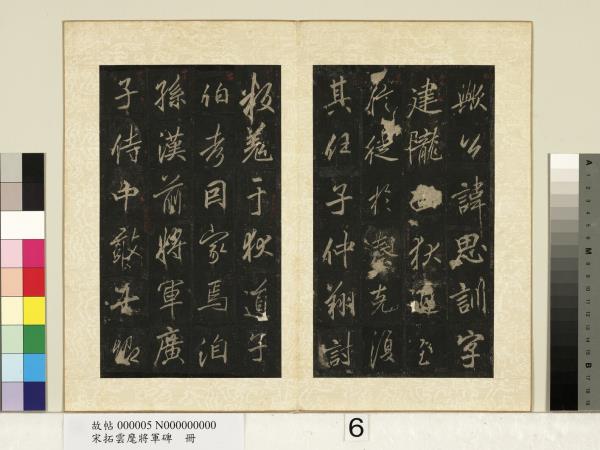 歟公諱思訓字
建隴狄道
徙於克
其任子仲翔討
叛羌于狄道子
伯考因家焉洎
孫漢前將軍廣
子侍中敢
故帖 000005 N000000000
宋拓雲麾將軍碑 冊
6
A
B